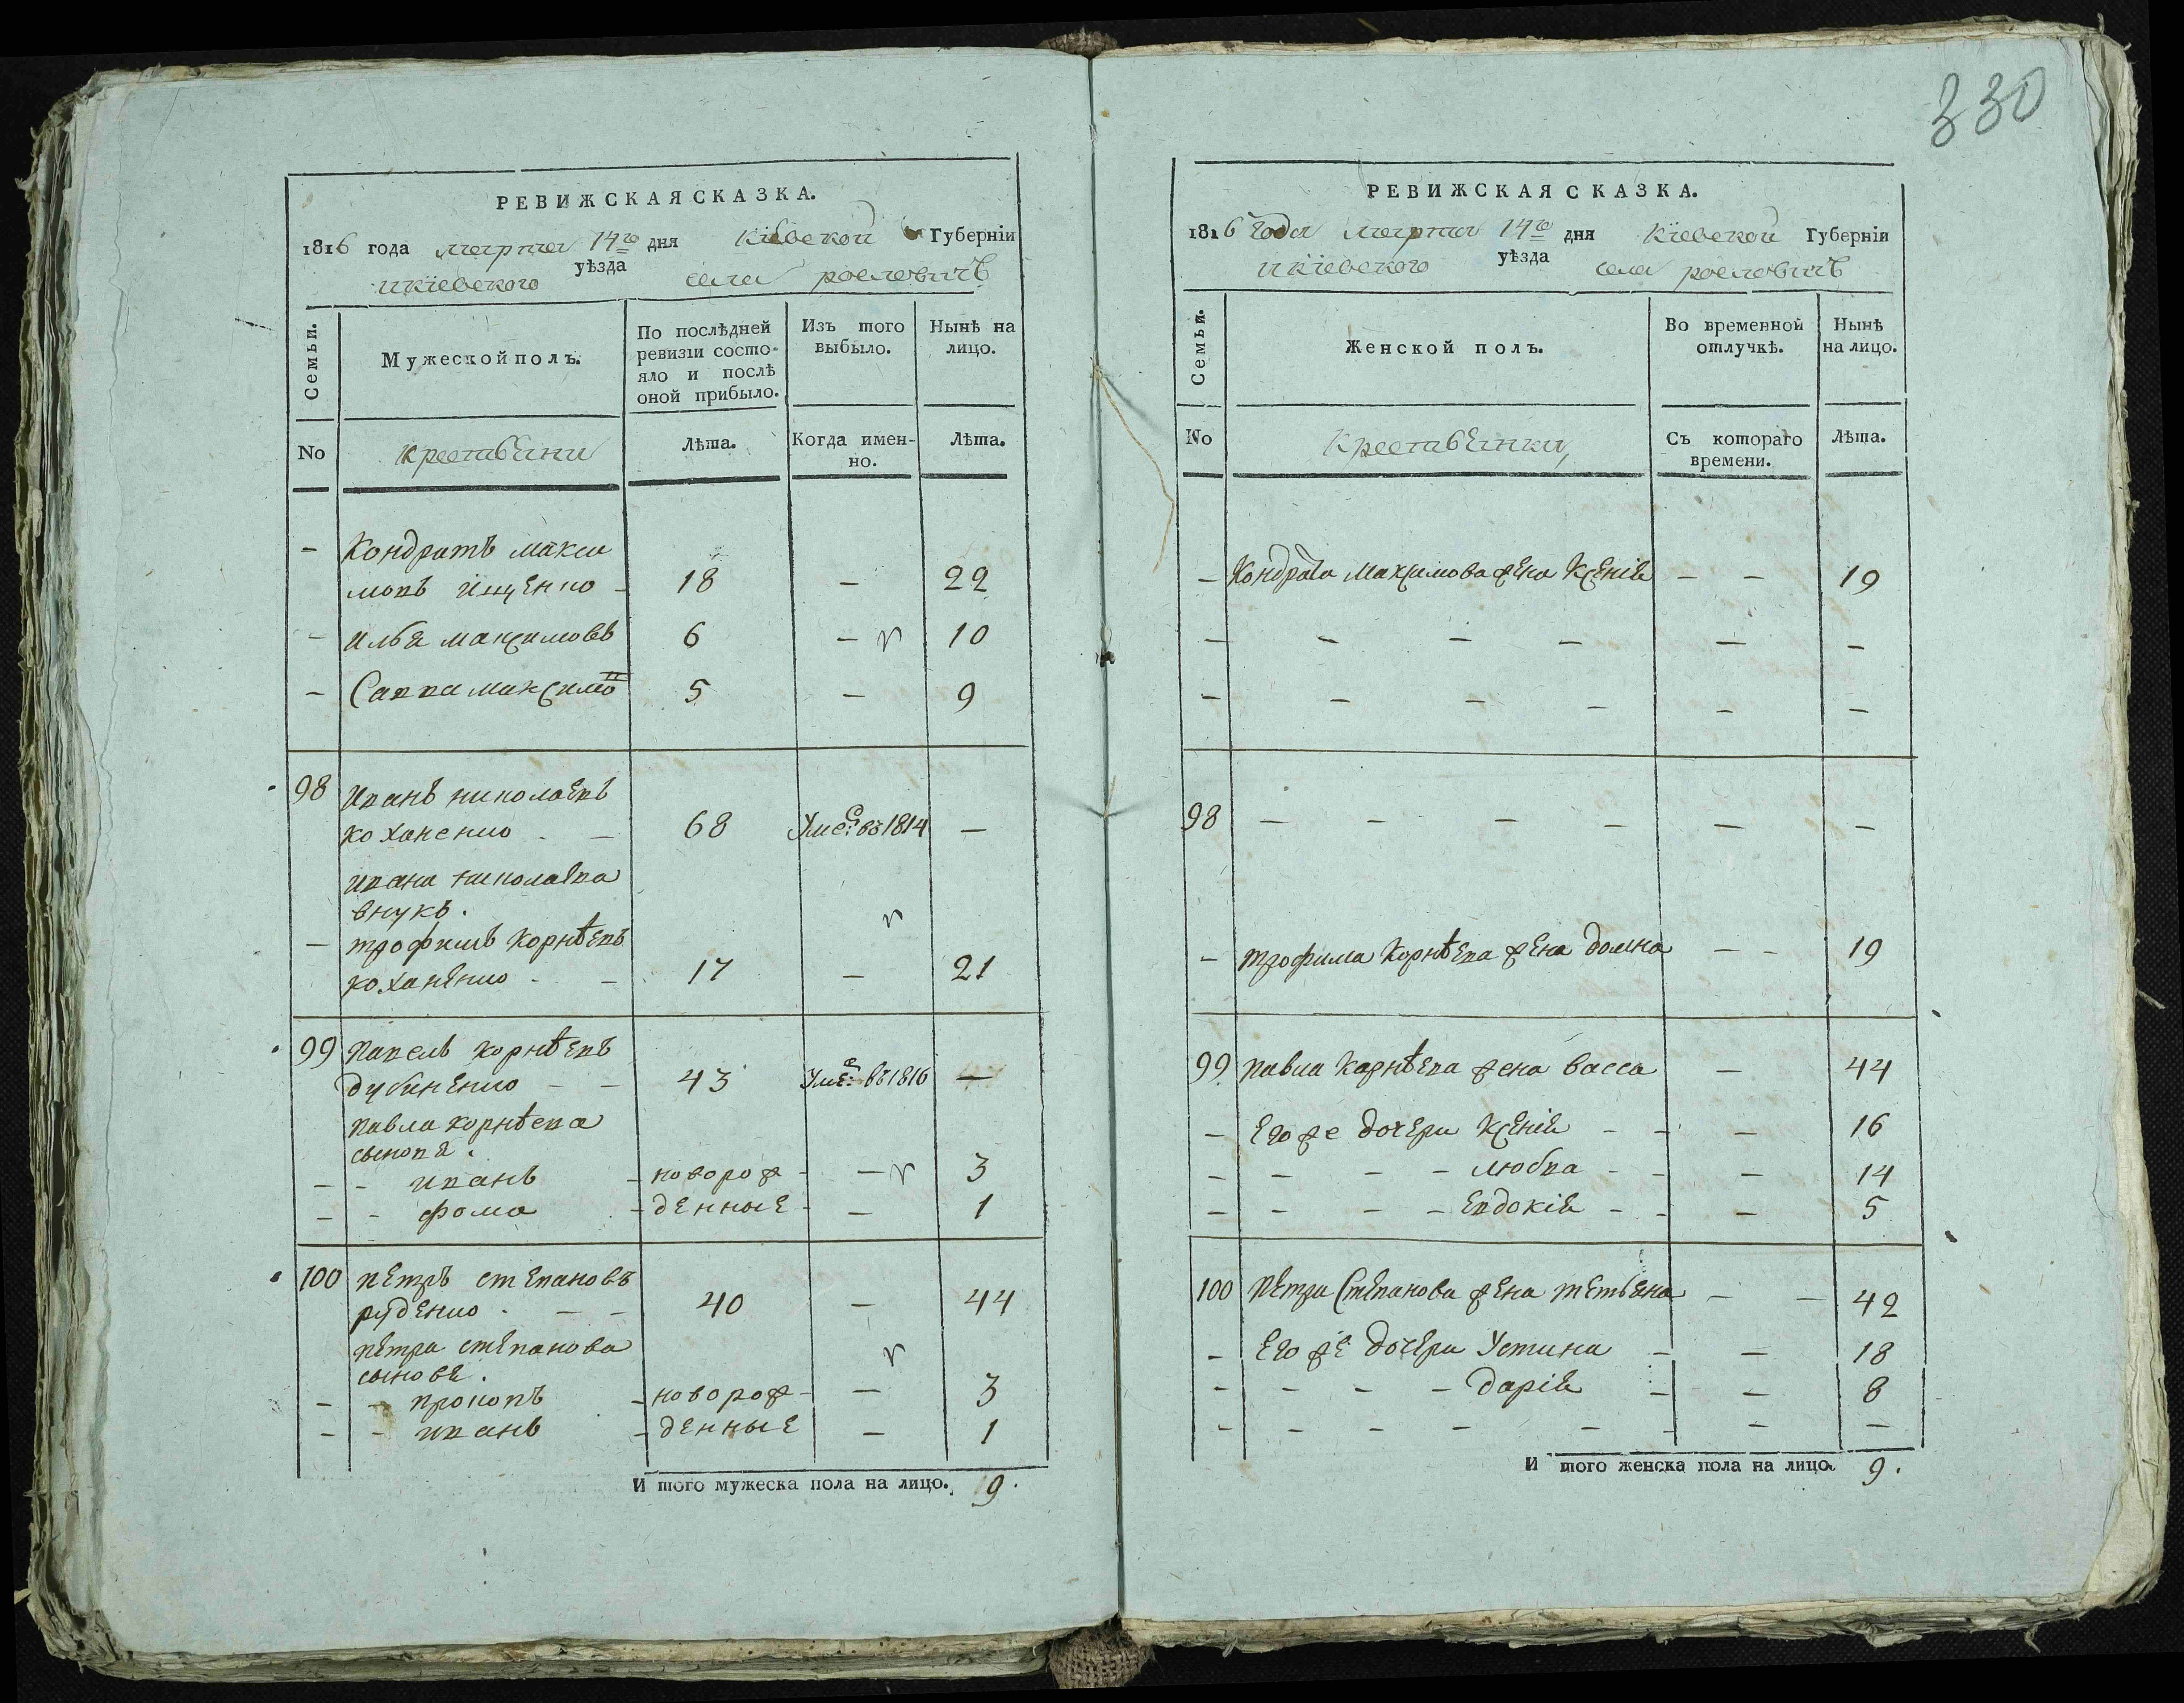 330
РЕВИЖСКАЯ СКАЗКА.
1816 года марта 14го дня Кіевской Губерніи
и кіевского уѣзда села рословичъ
Семьи.
Мужеской полъ.
По послѣдней ревизіи состо-
яло и послѣ
оной прибыло.
Изъ того
выбыло.
Нынѣ на
лицо.
No
крестьяни
Лѣта.
Когда имен-
но.
Лѣта.
– Кондратъ макси
мовъ ищенко – 18 – 22
– илья максимовъ 6 – 10
– Савва максимо 5 – 9
98 иванъ николаевъ
коханенко – 68 Умеръ въ 1814 –
ивана николаева
внукъ.
– трофимъ корнѣевъ
коханенко – 17 – 21
99 павелъ корнѣевъ
дубиненко – – 43 Умеръ въ 1816 –
павла корнѣева
сыновя.
– – иванъ – новорож – – 3
– – фома – денные – – 1
100 петръ степановъ
руденко – – 40 – 44
петра степанова
сыновя.
– – прокопъ – новорож – – 3
– – иванъ – денные – 1
И того мужеска пола на лицо. 9.
РЕВИЖСКАЯ СКАЗКА.
1816 года марта 14го дня Кіевской Губерніи
и кіевского уѣзда села рословичъ
Семьи.
Женской полъ.
Во временной
отлучкѣ.
Нынѣ
на лицо.
No
Крестьянки,
Съ котораго
времени.
Лѣта.
– Кондрата Максимова жена Ксенія – – 19
– – – – – –
– – – – – –
98 – – – – – –
– трофима Корнѣева жена домна – – 19
99 павла Карнѣева жена васса – 44
– Его же дочери Ксенія – – – 16
– – – – любка – – – 14
– – – – Евдокія – – – 5
100 Петра Степанова жена тетьяна – – 42
– Его же дочери Устина – – 18
– – – – дарія – – 8
– – – – – – – –
И того женска пола на лицо. 9.